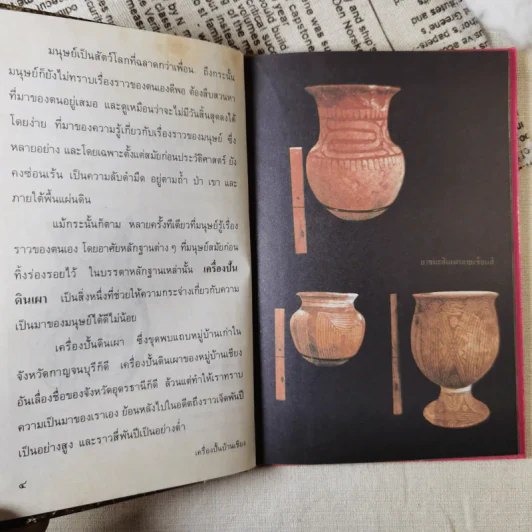 มนุษย์เป็นสัตว์โลกที่ฉลาดกว่าเพื่อน ถึงกระนั้น
มนุษย์ก็ยังไม่ทราบเรื่องราวของตนเองดีพอ ต้องสืบสวนหา
ที่มาของตนอยู่เสมอ และดูเหมือนว่าจะไม่มีวันสิ้นสุดลงได้
โดยง่าย ที่มาของความรู้เกี่ยวกับเรื่องราวของมนุษย์ ซึ่ง
หลายอย่าง และโดยเฉพาะตั้งแต่สมัยก่อนประวัติศาสตร์ ยัง
คงซ่อนเร้น เป็นความลับดำมืด อยู่ตามถ้ำ ป่า เขา และ
ภายใต้พื้นแผ่นดิน
แม้กระนั้นก็ตาม หลายครั้งทีเดียวที่มนุษย์รู้เรื่อง
ราวของตนเอง โดยอาศัยหลักฐานต่าง ๆ ที่มนุษย์สมัยก่อน
ทิ้งร่องรอยไว้ ในบรรดาหลักฐานเหล่านั้น เครื่องปั้น
ดินเผา เป็นสิ่งหนึ่งที่ช่วยให้ความกระจ่างเกี่ยวกับความ
เป็นมาของมนุษย์ได้ดีไม่น้อย
เครื่องปั้นดินเผา ซึ่งขุดพบแถบหมู่บ้านเก่าใน
จังหวัดกาญจนบุรีก็ดี เครื่องปั้นดินเผาของหมู่บ้านเชียง
อันเลื่องชื่อของจังหวัดอุดรธานีก็ดี ล้วนแต่ทำให้เราทราบ
ความเป็นมาของเราเอง ย้อนหลังไปในอดีตถึงราวเจ็ดพันปี
เป็นอย่างสูง และราวสี่พันปีเป็นอย่างต่ำ
เครื่องปั้นบ้านเชียง
๔